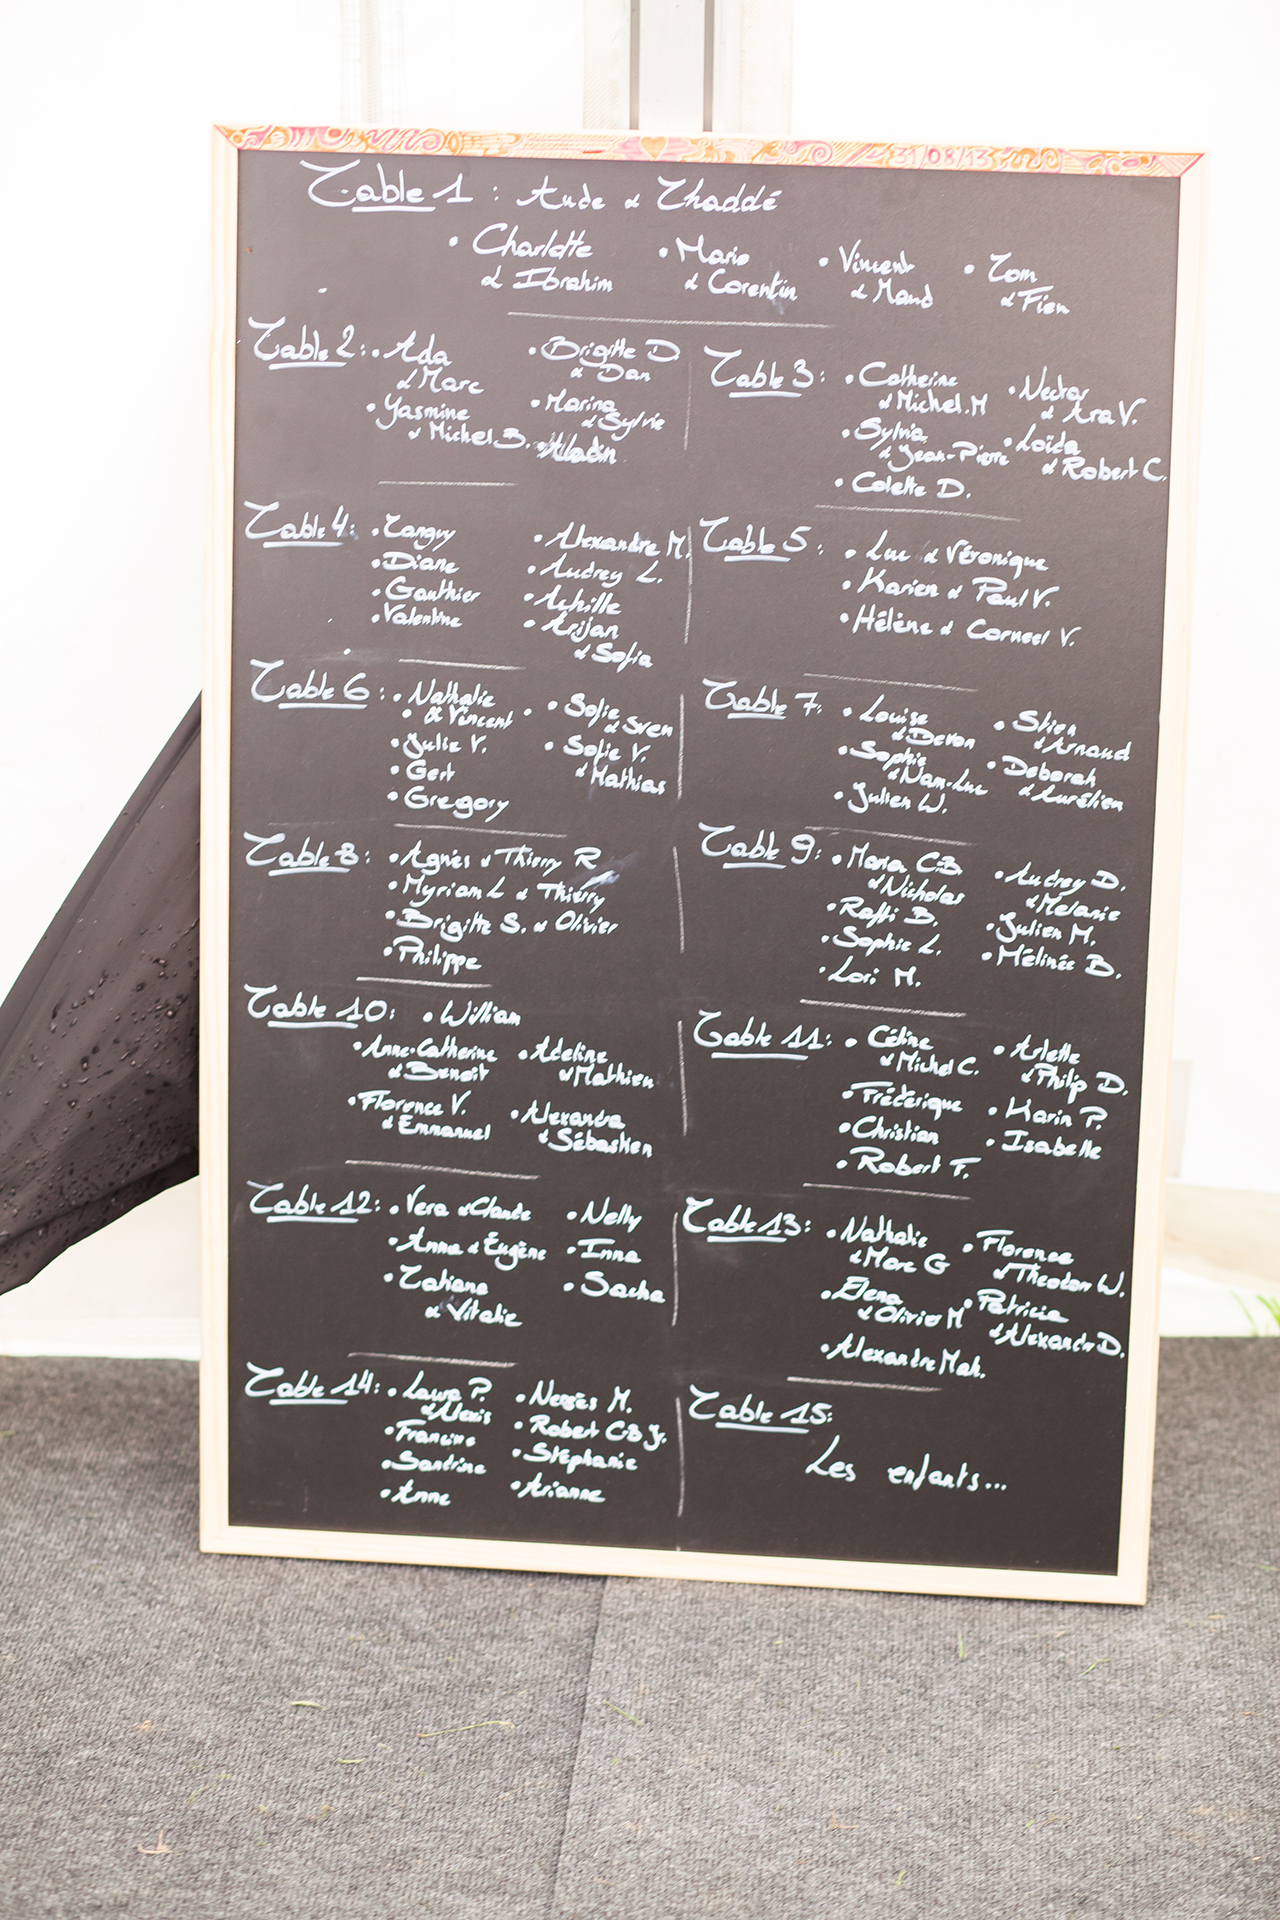 31/08/13
Table 1 : Aude & Thaddé
• Charlotte • Marie • Vincent • Tom
& Ibrahim & Corentin & Maud & Fien
Table 2 : • Ada
& Marc
• Yasmine
& Michel B.
• Brigitte D.
& Dan
• Marina
& Sylvie
• Aladin
Table 3 : • Catherine
& Michel M
• Sylvia
& Jean-Pierre
• Colette D.
• Nectar
& Ara V.
• Loïda
& Robert C.
Table 4 : • Tanguy
• Diane
• Gauthier
• Valentine
• Alexandre M.
• Audrey L.
• Achille
• Arijan
& Sofia
Table 5 : • Luc & Véronique
• Karien & Paul V.
• Hélène & Corneel V.
Table 6 : • Nathalie
• & Vincent
• Julie V.
• Gert
• Gregory
• Sofie
& Sven
• Sofie V.
& Mathias
Table 7 : • Louise
& Devon
• Sophie
& Nam-Luc
• Julien W.
• Stien
& Arnaud
• Deborah
& Aurélien
Table 8 : • Agnès & Thierry R
• Myriam L & Thierry
• Brigitte S. & Olivier
• Philippe
Table 9 : • Maria C-B
& Nicholas
• Raffi B.
• Sophie L.
• Lori M.
• Audrey D.
& Mélanie
• Julien M.
• Mélinée B.
Table 10 : • William
• Anne-Catherine
& Benoît
• Florence V.
& Emmanuel
• Adeline
& Mathieu
• Alexandra
& Sébastien
Table 11 : • Céline
& Michel C.
• Frédérique
• Christian
• Robert F.
• Arlette
& Philip D.
• Karin P.
• Isabelle
Table 12 : • Vera & Claude
• Anna & Eugène
• Tatiana
& Vitalie
• Nelly
• Inna
• Sacha
Table 13 : • Nathalie
& Marc G
• Elena
& Olivier M
• Alexandre Mak.
• Florence
& Theodor W.
• Patricia
& Alexandr D.
Table 14 : • Laura P.
& Alexis
• Francine
• Sandrine
• Anne
• Nersès M.
• Robert C-B J.
• Stéphanie
• Arianne
Table 15 :
Les enfants...